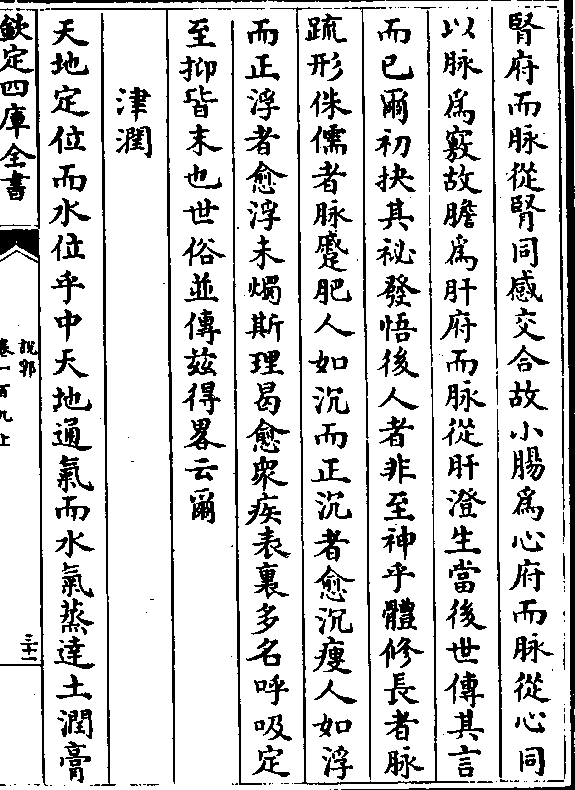 腎府而脉從腎同感交合故小腸為心府而脉從心同
以脉為竅故膽為肝府而脉從肝澄生當後世傳其言
而已爾初抉其袐發悟後人者非至神乎體修長者脉
疏形侏儒者脉蹙肥人如沉而正沉者愈沉瘦人如浮
而正浮者愈浮未燭斯理曷愈衆疾表裏多名呼吸定
至抑皆末也世俗並傳兹得畧云爾
津潤
天地定位而水位乎中天地通氣而水氣蒸達土潤膏
欽定四庫全書
說郛
卷一百九上
三十一